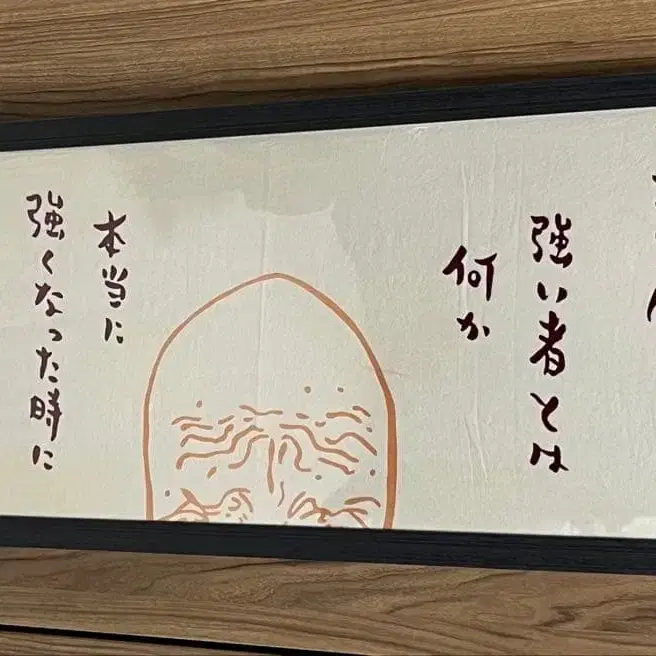 強い者とは
何か
本当に
強くなった時に